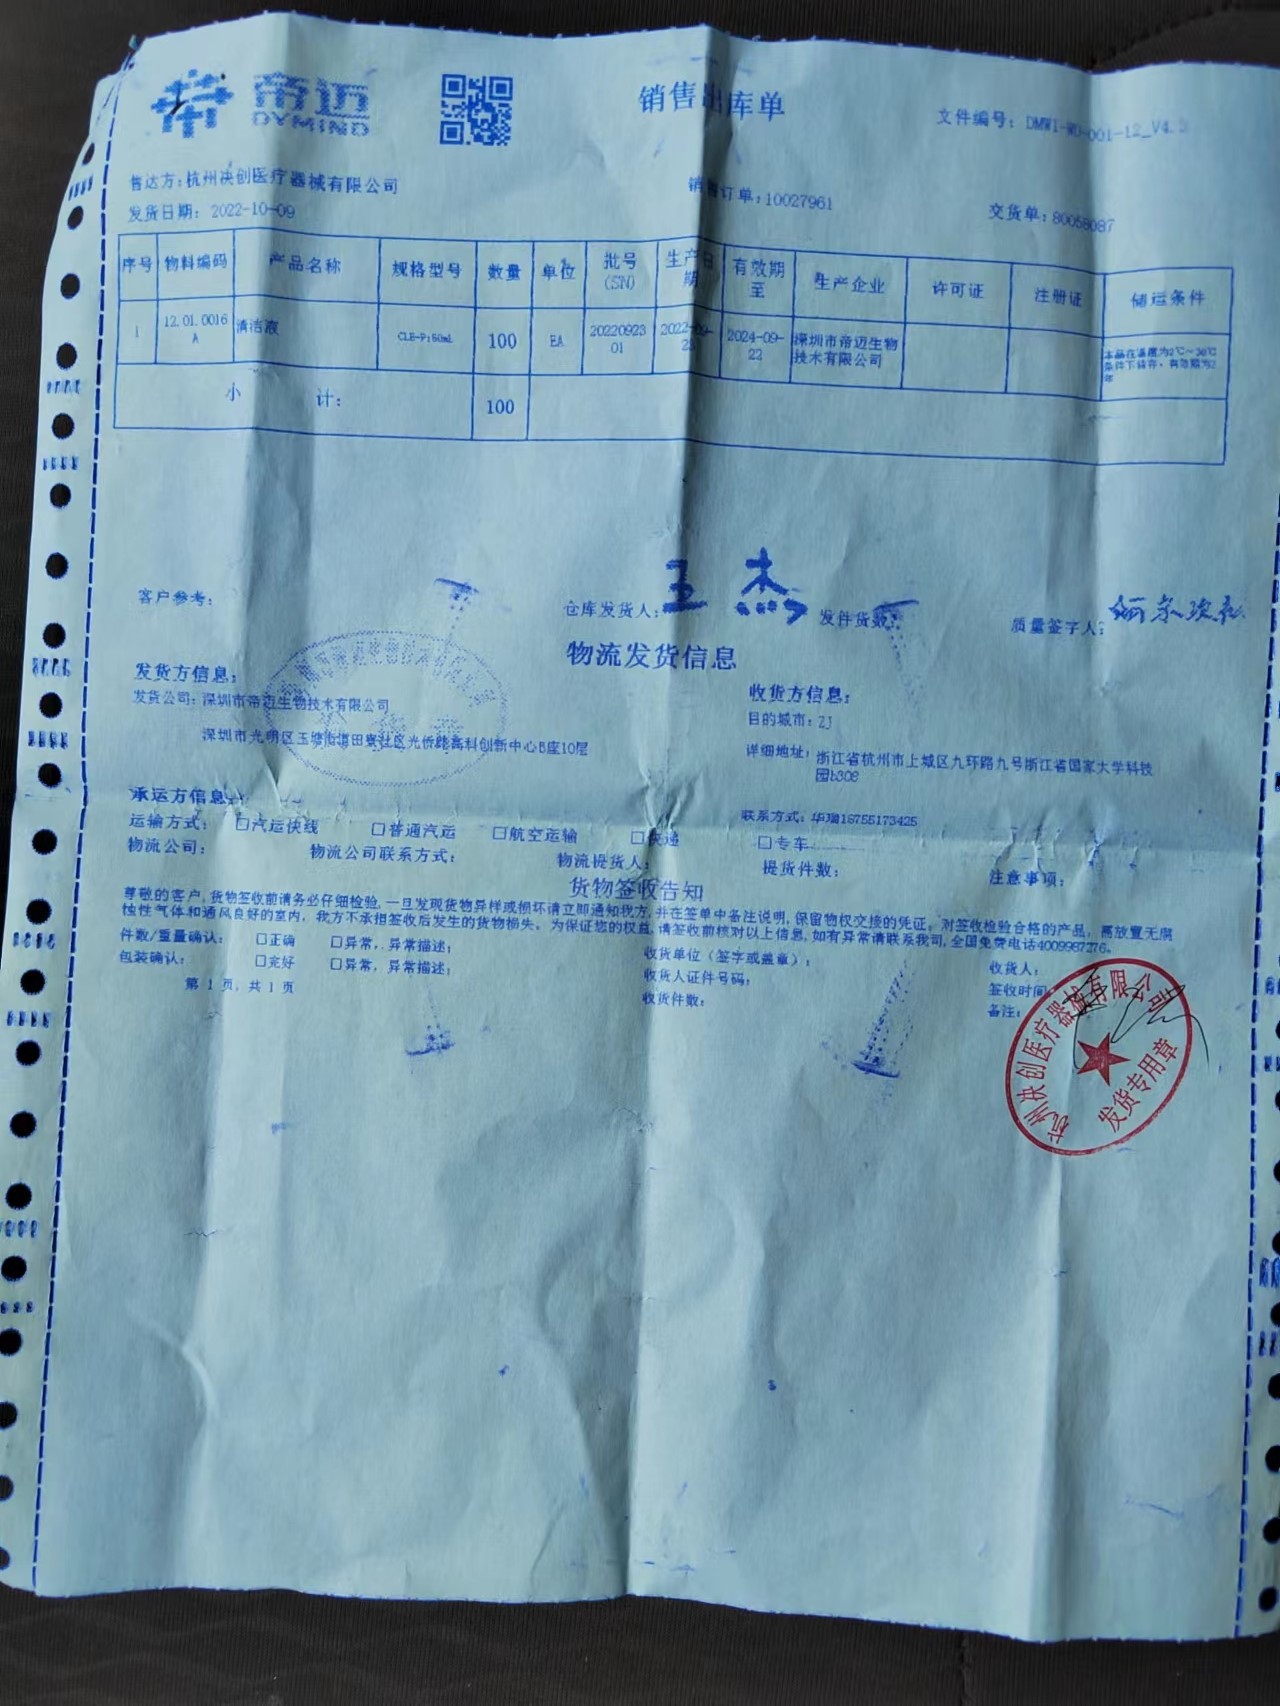 帝迈
DYMIND
销售出库单
文件编号: DMWI-WD-001-12_V4.3
售达方: 杭州决创医疗器械有限公司
销售订单: 10027961
交货单: 80058087
发货日期: 2022-10-09
序号 物料编码 产品名称 规格型号 数量 单位 批号(SN) 生产日期 有效期至 生产企业 许可证 注册证 储运条件
1 12.01.0016A 清洁液 CLE-P;50mL 100 EA 2022092301 2022-09-23 2024-09-22 深圳市帝迈生物技术有限公司 本品在温度为2℃~30℃条件下储存,有效期为2年
小 计: 100
客户参考:
仓库发货人: 王杰
发件货数:
质量签字人:
物流发货信息
发货方信息:
收货方信息:
发货公司: 深圳市帝迈生物技术有限公司
目的城市: ZJ
深圳市光明区玉塘街道田寮社区光侨路高科创新中心B座10层
详细地址: 浙江省杭州市上城区九环路九号浙江省国家大学科技
园b308
承运方信息:
联系方式: 华瑞16755173425
运输方式: □汽运快线 □普通汽运 □航空运输 □快递 □专车
物流公司: 物流公司联系方式: 物流提货人: 提货件数: 注意事项:
货物签收告知
尊敬的客户, 货物签收前请务必仔细检验, 一旦发现货物异样或损坏请立即通知我方, 并在签单中备注说明, 保留物权交接的凭证。对签收检验合格的产品, 需放置无腐
蚀性气体和通风良好的室内, 我方不承担签收后发生的货物损失。为保证您的权益, 请签收前核对以上信息, 如有异常请联系我司, 全国免费电话4009987276。
件数/重量确认: □正确 □异常, 异常描述:
收货单位(签字或盖章):
收货人:
包装确认: □完好 □异常, 异常描述:
收货人证件号码:
签收时间:
第 1 页, 共 1 页
收货件数:
备注:
杭州决创医疗器械有限公司
发货专用章